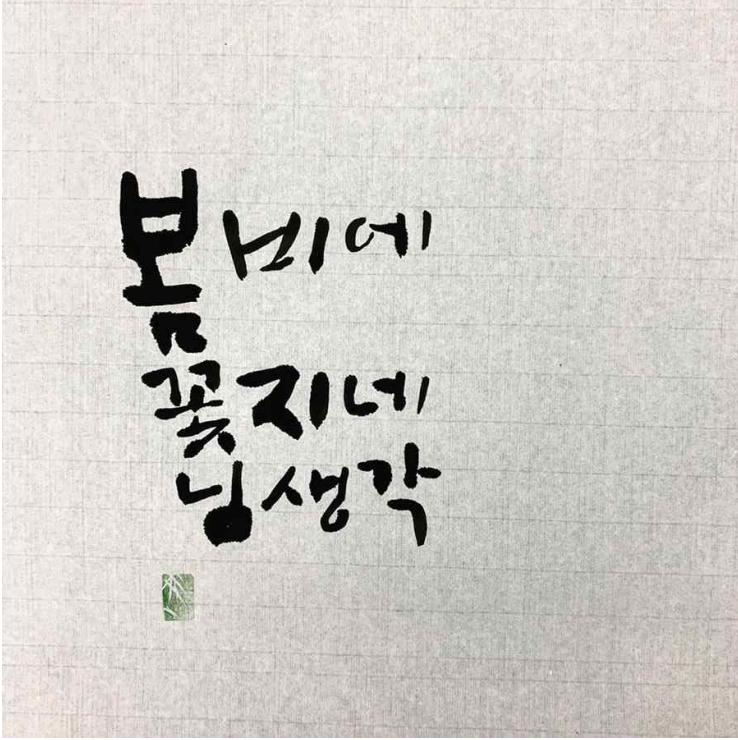 봄비에
꽃지네
님생각